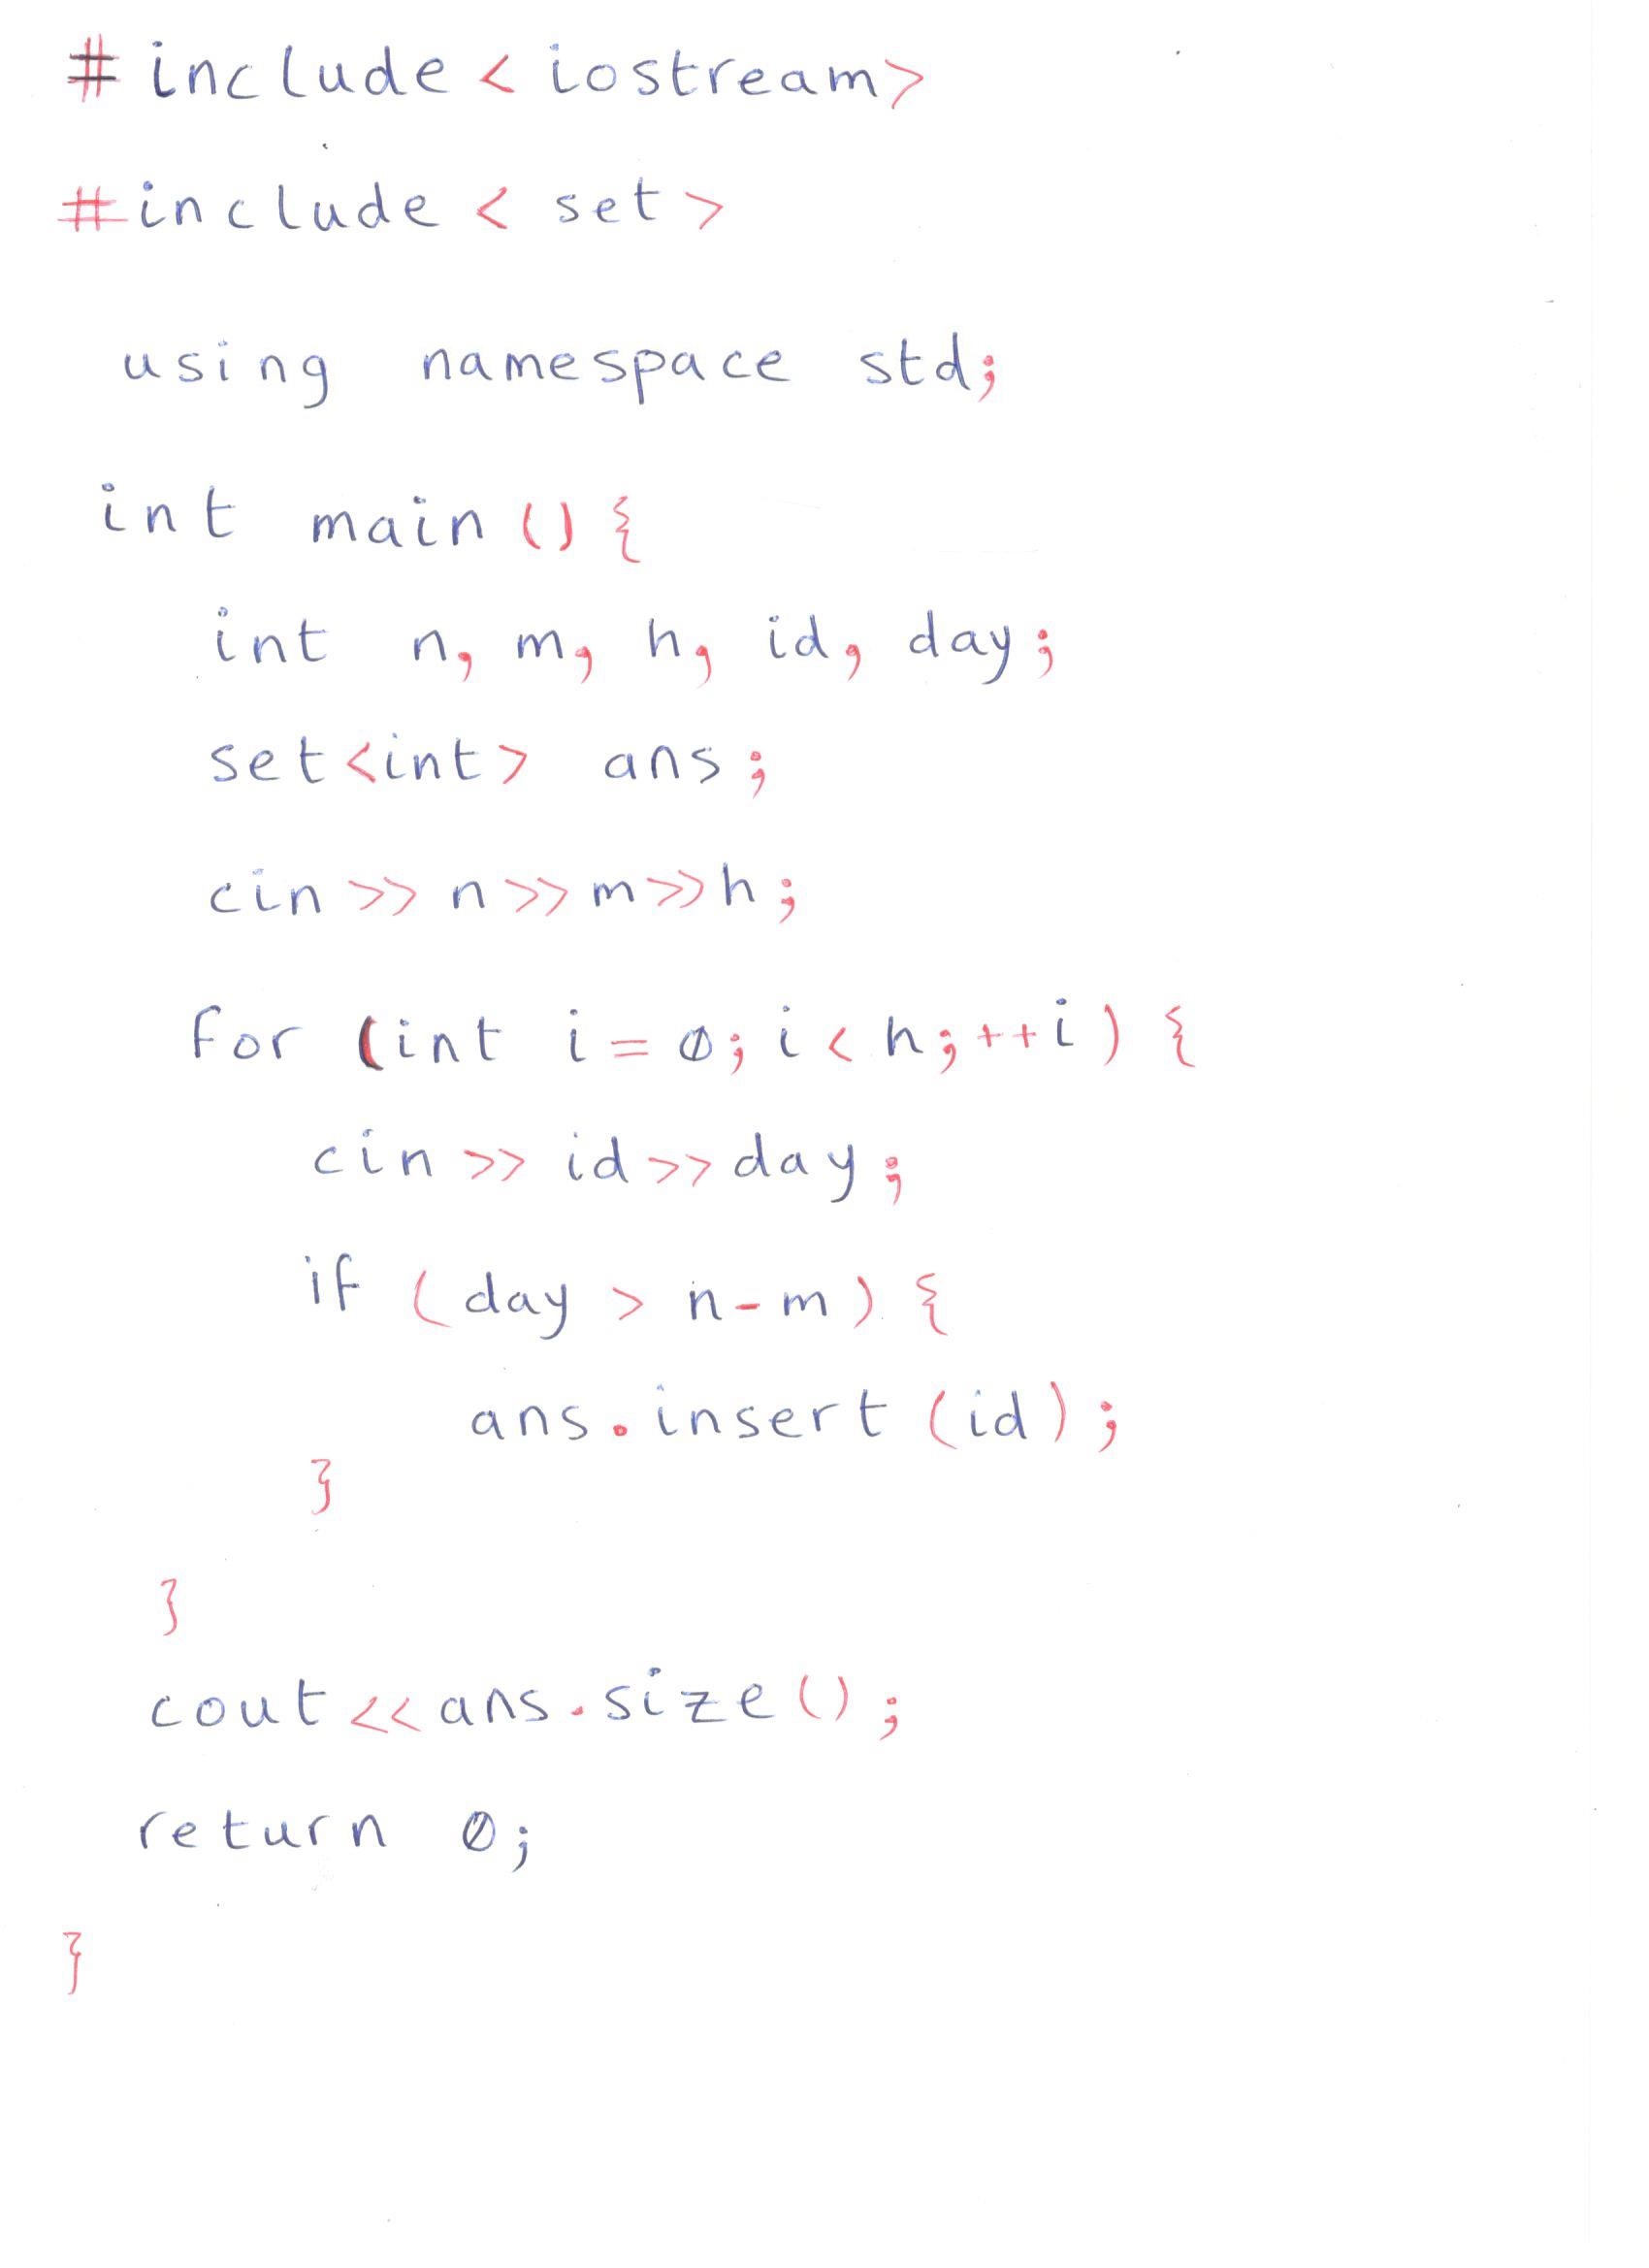 #include< iostream>
#include< set>
using namespace std;
int main(){
int n, m, h, id, day;
set<int> ans;
cin>>n>>m>>h;
for (int i=0;i<h;++i){
cin>> id>>day;
if (day > n-m) {
ans.insert(id);
}
}
cout<<ans.size();
return 0;
}